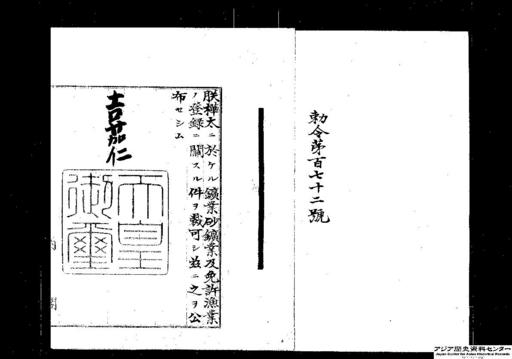 勅令第百七十二號
朕樺太ニ於ケル鑛業砂鑛業及免許漁業
ノ登錄ニ關スル件ヲ裁可シ玆ニ之ヲ公
布セシム
嘉仁
天皇
御璽
内閣
アジア歴史資料センター
Japan Center for Asian Historical Records